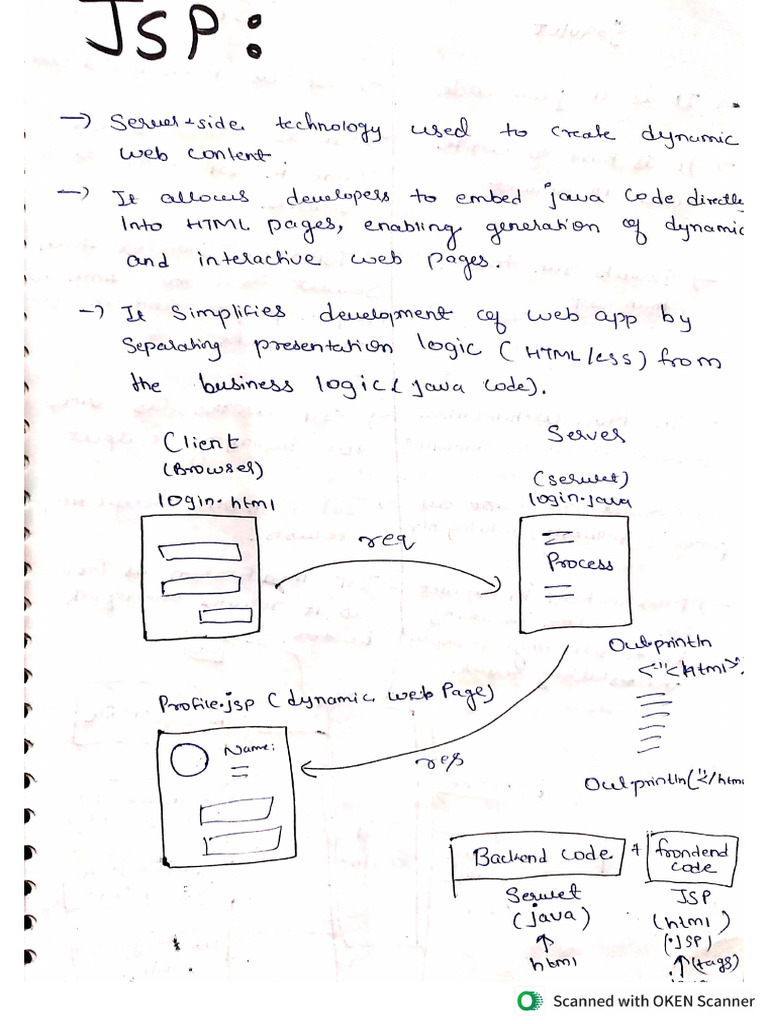 JSP:
→ Server-side technology used to create dynamic
web content.
→ It allows developers to embed java code directly
Into HTML pages, enabling generation of dynamic
and interactive web pages.
→ It Simplifies development of web app by
Separating presentation logic (HTML/css) from
the business logic (java code).
Client
(Browser)
login.html
Server
(servlet)
login.java
req
Process
Out.println
<"<html>
Profile.jsp (dynamic web Page)
Name:
res
Out.println("</html
Backend code + frondend
code
Servlet
(java)
↑
html
JSP
(html)
(.JSP)
↑(tags)
Scanned with OKEN Scanner